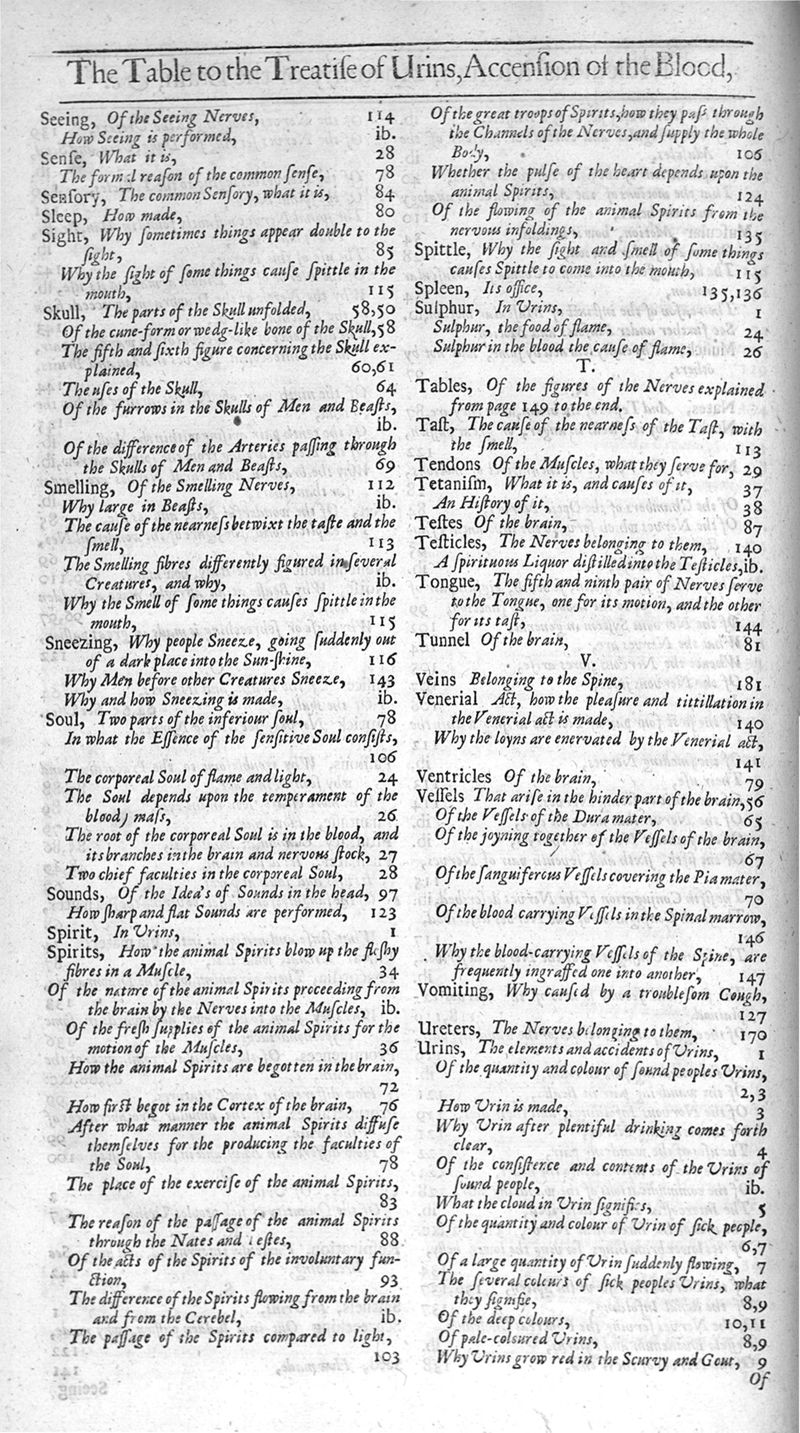 The Table to the Treatiſe of Urins, Accenſion of the Blood,
Seeing, Of the Seeing Nerves, 114
How Seeing is performed, ib.
Senſe, What it is, 28
The formal reaſon of the common ſenſe, 78
Senſory, The common Senſory, what it is, 84
Sleep, How made, 80
Sight, Why ſometimes things appear double to the
ſight, 85
Why the ſight of ſome things cauſe ſpittle in the
mouth, 115
Skull, The parts of the Skull unfolded, 58,50
Of the cune-form or wedg-like bone of the Skull,58
The fifth and ſixth figure concerning the Skull ex-
plained, 60,61
The uſes of the Skull, 64
Of the furrows in the Skulls of Men and Beaſts,
ib.
Of the difference of the Arteries paſſing through
the Skulls of Men and Beaſts, 69
Smelling, Of the Smelling Nerves, 112
Why large in Beaſts, ib.
The cauſe of the nearneſs betwixt the taſte and the
ſmell, 113
The Smelling fibres differently figured in ſeveral
Creatures, and why, ib.
Why the Smell of ſome things cauſes ſpittle in the
mouth, 115
Sneezing, Why people Sneeze, going ſuddenly out
of a dark place into the Sun-ſhine, 116
Why Men before other Creatures Sneeze, 143
Why and how Sneezing is made, ib.
Soul, Two parts of the inferiour ſoul, 78
In what the Eſſence of the ſenſitive Soul conſiſts,
106
The corporeal Soul of flame and light, 24
The Soul depends upon the temperament of the
bloody maſs, 26
The root of the corporeal Soul is in the blood, and
its branches in the brain and nervous ſtock, 27
Two chief faculties in the corporeal Soul, 28
Sounds, Of the Idea's of Sounds in the head, 97
How ſharp and flat Sounds are performed, 123
Spirit, In Urins, 1
Spirits, How the animal Spirits blow up the fleſhy
fibres in a Muſcle, 34
Of the nature of the animal Spirits proceeding from
the brain by the Nerves into the Muſcles, ib.
Of the freſh ſupplies of the animal Spirits for the
motion of the Muſcles, 36
How the animal Spirits are begotten in the brain,
72
How firſt begot in the Cortex of the brain, 76
After what manner the animal Spirits diffuſe
themſelves for the producing the faculties of
the Soul, 78
The place of the exerciſe of the animal Spirits,
83
The reaſon of the paſſage of the animal Spirits
through the Nates and Teſtes, 88
Of the acts of the Spirits of the involuntary fun-
ction, 93
The difference of the Spirits flowing from the brain
and from the Cerebel, ib.
The paſſage of the Spirits compared to light,
103
Of the great troops of Spirits, how they paſs through
the Channels of the Nerves, and ſupply the whole
Body, 106
Whether the pulſe of the heart depends upon the
animal Spirits, 124
Of the flowing of the animal Spirits from the
nervous infoldings, 135
Spittle, Why the ſight and ſmell of ſome things
cauſes Spittle to come into the mouth, 115
Spleen, Its office, 135,136
Sulphur, In Urins, 1
Sulphur, the food of flame, 24
Sulphur in the blood the cauſe of flame, 26
T.
Tables, Of the figures of the Nerves explained
from page 149 to the end.
Taſt, The cauſe of the nearneſs of the Taſt, with
the ſmell, 113
Tendons Of the Muſcles, what they ſerve for, 29
Tetaniſm, What it is, and cauſes of it, 37
An Hiſtory of it, 38
Teſtes Of the brain, 87
Teſticles, The Nerves belonging to them, 140
A ſpirituous Liquor diſtilled into the Teſticles,ib.
Tongue, The fifth and ninth pair of Nerves ſerve
to the Tongue, one for its motion, and the other
for its taſt, 144
Tunnel Of the brain, 81
V.
Veins Belonging to the Spine, 181
Venerial Act, how the pleaſure and tittillation in
the Venerial act is made, 140
Why the loyns are enervated by the Venerial act,
141
Ventricles Of the brain, 79
Veſſels That ariſe in the hinder part of the brain,56
Of the Veſſels of the Dura mater, 65
Of the joyning together of the Veſſels of the brain,
67
Of the ſanguiferous Veſſels covering the Pia mater,
70
Of the blood carrying Veſſels in the Spinal marrow,
146
Why the blood-carrying Veſſels of the Spine, are
frequently ingraffed one into another, 147
Vomiting, Why cauſed by a troubleſom Cough,
127
Ureters, The Nerves belonging to them, 170
Urins, The elements and accidents of Urins, 1
Of the quantity and colour of ſound peoples Urins,
2,3
How Urin is made, 3
Why Urin after plentiful drinking comes forth
clear, 4
Of the conſiſtence and contents of the Urins of
ſound people, ib.
What the cloud in Urin ſignifies, 5
Of the quantity and colour of Urin of ſick people,
6,7
Of a large quantity of Urin ſuddenly flowing, 7
The ſeveral colours of ſick peoples Urins, what
they ſignifie, 8,9
Of the deep colours, 10,11
Of pale-coloured Urins, 8,9
Why Urins grow red in the Scurvy and Gout, 9
Of